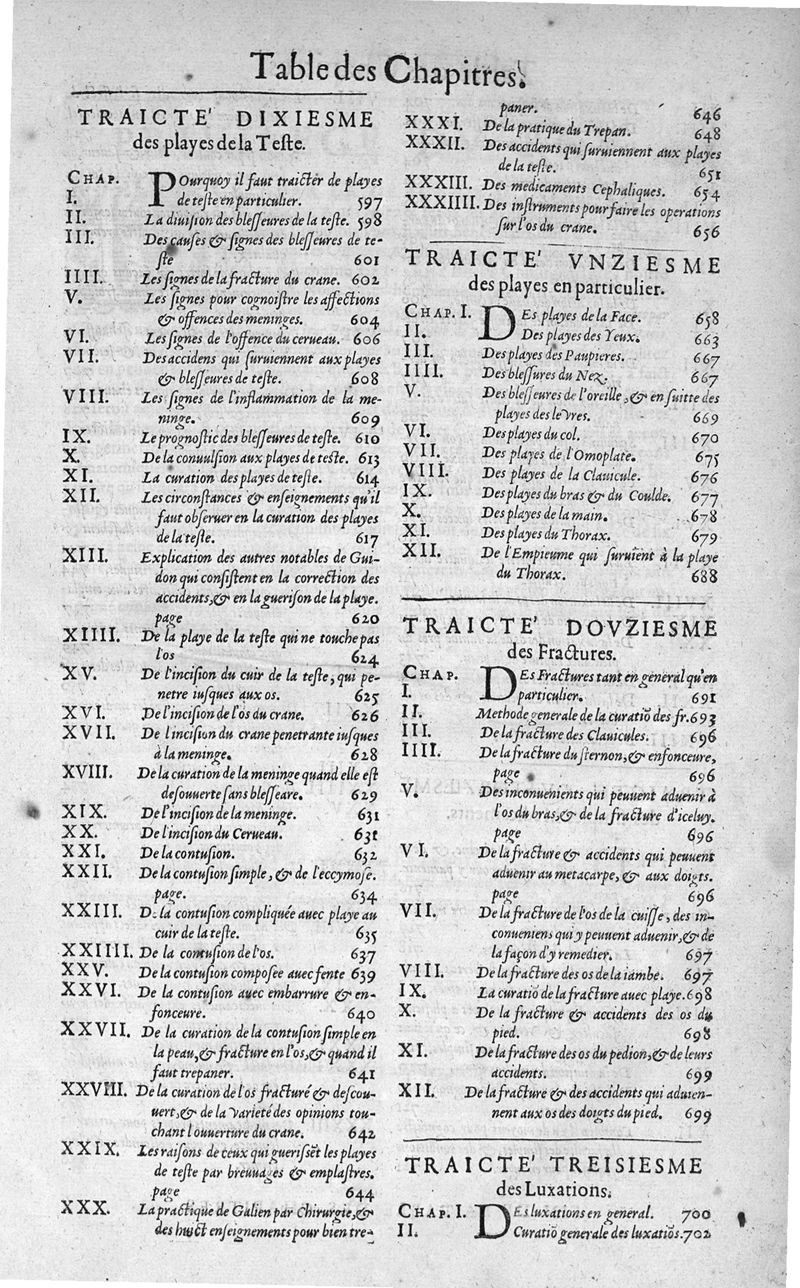 Table des Chapitres.
TRAICTE' DIXIESME
des playes de la Teste.
CHAP. POurquoy il faut traicter de playes
I. de teste en particulier. 597
II. La diuision des blesseures de la teste. 598
III. Des causes & signes des blesseures de te-
ste 601
IIII. Les signes de la fracture du crane. 602
V. Les signes pour cognoistre les affections
& offences des meninges. 604
VI. Les signes de l'offence du cerueau. 606
VII. Des accidens qui suruiennent aux playes
& blesseures de teste. 608
VIII. Les signes de l'inflammation de la me-
ninge. 609
IX. Le prognostic des blesseures de teste. 610
X. De la conuulsion aux playes de teste. 613
XI. La curation des playes de teste. 614
XII. Les circonstances & enseignements qu'il
faut obseruer en la curation des playes
de la teste. 617
XIII. Explication des autres notables de Gui-
don qui consistent en la correction des
accidents, & en la guerison de la playe.
page 620
XIIII. De la playe de la teste qui ne touche pas
l'os 624
XV. De l'incision du cuir de la teste, qui pe-
netre iusques aux os. 625
XVI. De l'incision de l'os du crane. 626
XVII. De l'incision du crane penetrante iusques
à la meninge. 628
XVIII. De la curation de la meninge quand elle est
descouuerte sans blesseare. 629
XIX. De l'incision de la meninge. 631
XX. De l'incision du Cerueau. 631
XXI. De la contusion. 632
XXII. De la contusion simple, & de l'eccymose.
page. 634
XXIII. De la contusion compliquée auec playe au
cuir de la teste. 635
XXIIII. De la contusion de l'os. 637
XXV. De la contusion composee auec fente 639
XXVI. De la contusion auec embarrure & en-
fonceure. 640
XXVII. De la curation de la contusion simple en
la peau, & fracture en l'os, & quand il
faut trepaner. 641
XXVIII. De la curation de l'os fracturé & descou-
uert, & de la varieté des opinions tou-
chant l'ouuerture du crane. 642
XXIX. Les raisons de ceux qui guerissẽt les playes
de teste par breuuages & emplastres.
page 644
XXX. La practique de Galien par Chirurgie, &
des huict enseignements pour bien tre-
paner. 646
XXXI. De la pratique du Trepan. 648
XXXII. Des accidents qui suruiennent aux playes
de la teste. 651
XXXIII. Des medicaments Cephaliques. 654
XXXIIII. Des instruments pour faire les operations
sur l'os du crane. 656
TRAICTE' VNZIESME
des playes en particulier.
CHAP. I. DEs playes de la Face. 658
II. Des playes des Yeux. 663
III. Des playes des Paupieres. 667
IIII. Des blessures du Nez. 667
V. Des blesseures de l'oreille, & en suitte des
playes des levres. 669
VI. Des playes du col. 670
VII. Des playes de l'Omoplate. 675
VIII. Des playes de la Clauicule. 676
IX. Des playes du bras & du Coulde. 677
X. Des playes de la main. 678
XI. Des playes du Thorax. 679
XII. De l'Empieume qui suruiẽt à la playe
du Thorax. 688
TRAICTE' DOVZIESME
des Fractures.
CHAP. DEs Fractures tant en general qu'en
I. particulier. 691
II. Methode generale de la curatiõ des fr. 693
III. De la fracture des Clauicules. 696
IIII. De la fracture du sternon, & enfonceure,
page 696
V. Des inconuenients qui peuuent aduenir à
l'os du bras, & de la fracture d'iceluy.
page 696
VI. De la fracture & accidents qui peuuent
aduenir au metacarpe, & aux doigts.
page 696
VII. De la fracture de l'os de la cuisse, des in-
conueniens qui y peuuent aduenir, & de
la façon d'y remedier. 697
VIII. De la fracture des os de la iambe. 697
IX. La curatiõ de la fracture auec playe. 698
X. De la fracture & accidents des os du
pied. 698
XI. De la fracture des os du pedion, & de leurs
accidents. 699
XII. De la fracture & des accidents qui aduien-
nent aux os des doigts du pied. 699
TRAICTE' TREISIESME
des Luxations.
CHAP. I. DEs luxations en general. 700
II. Curatiõ generale des luxatiõs. 702